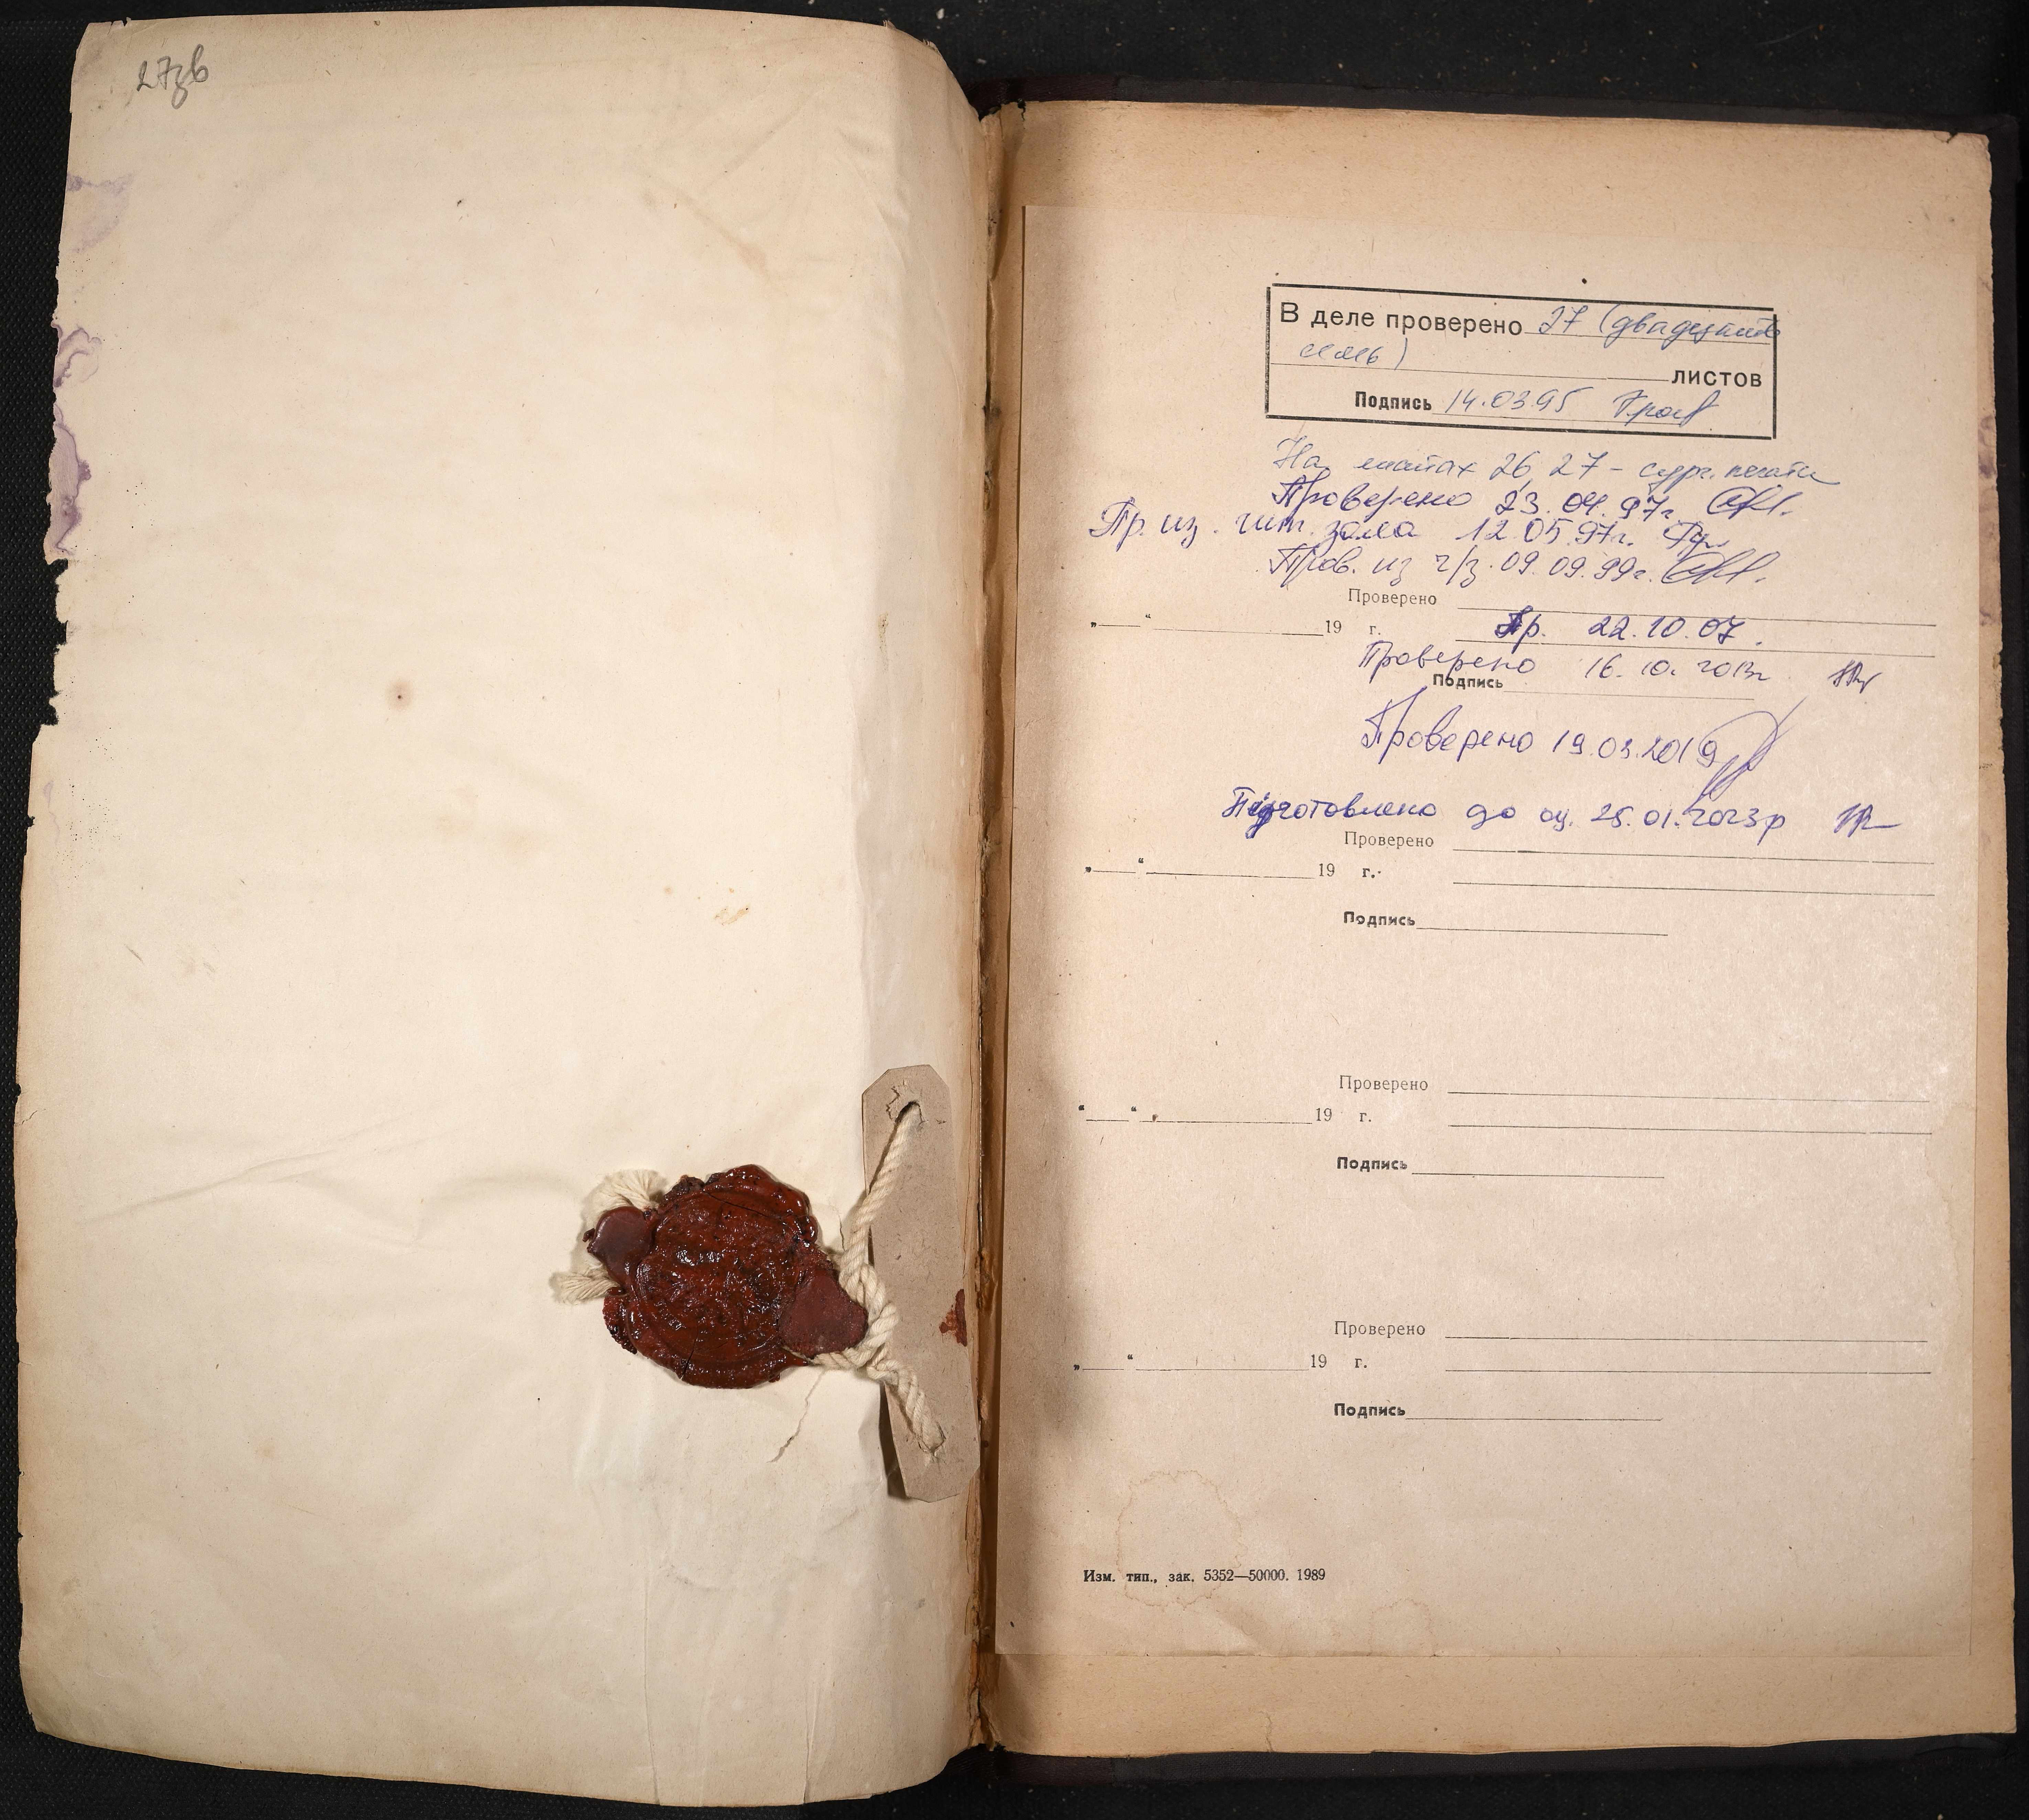 27зв
В деле проверено 27 (двадцать
семь)
листов
Подпись 14.03.95
На листах 26, 27 - сург. печати
Проверено 23.04.97г.
Пр. из чит. зала 12.05.97г.
Пров. из ч/з. 09.09.99г.
Проверено
„ “ 19 г. Пр. 22.10.07.
Проверено 16.10.2013г
Подпись
Проверено 19.03.2019
Підготовлено до оц. 25.01.2023р
Проверено
„ “ 19 г.
Подпись
Проверено
“ “ 19 г.
Подпись
Проверено
„ “ 19 г.
Подпись
Изм. тип., зак. 5352—50000. 1989